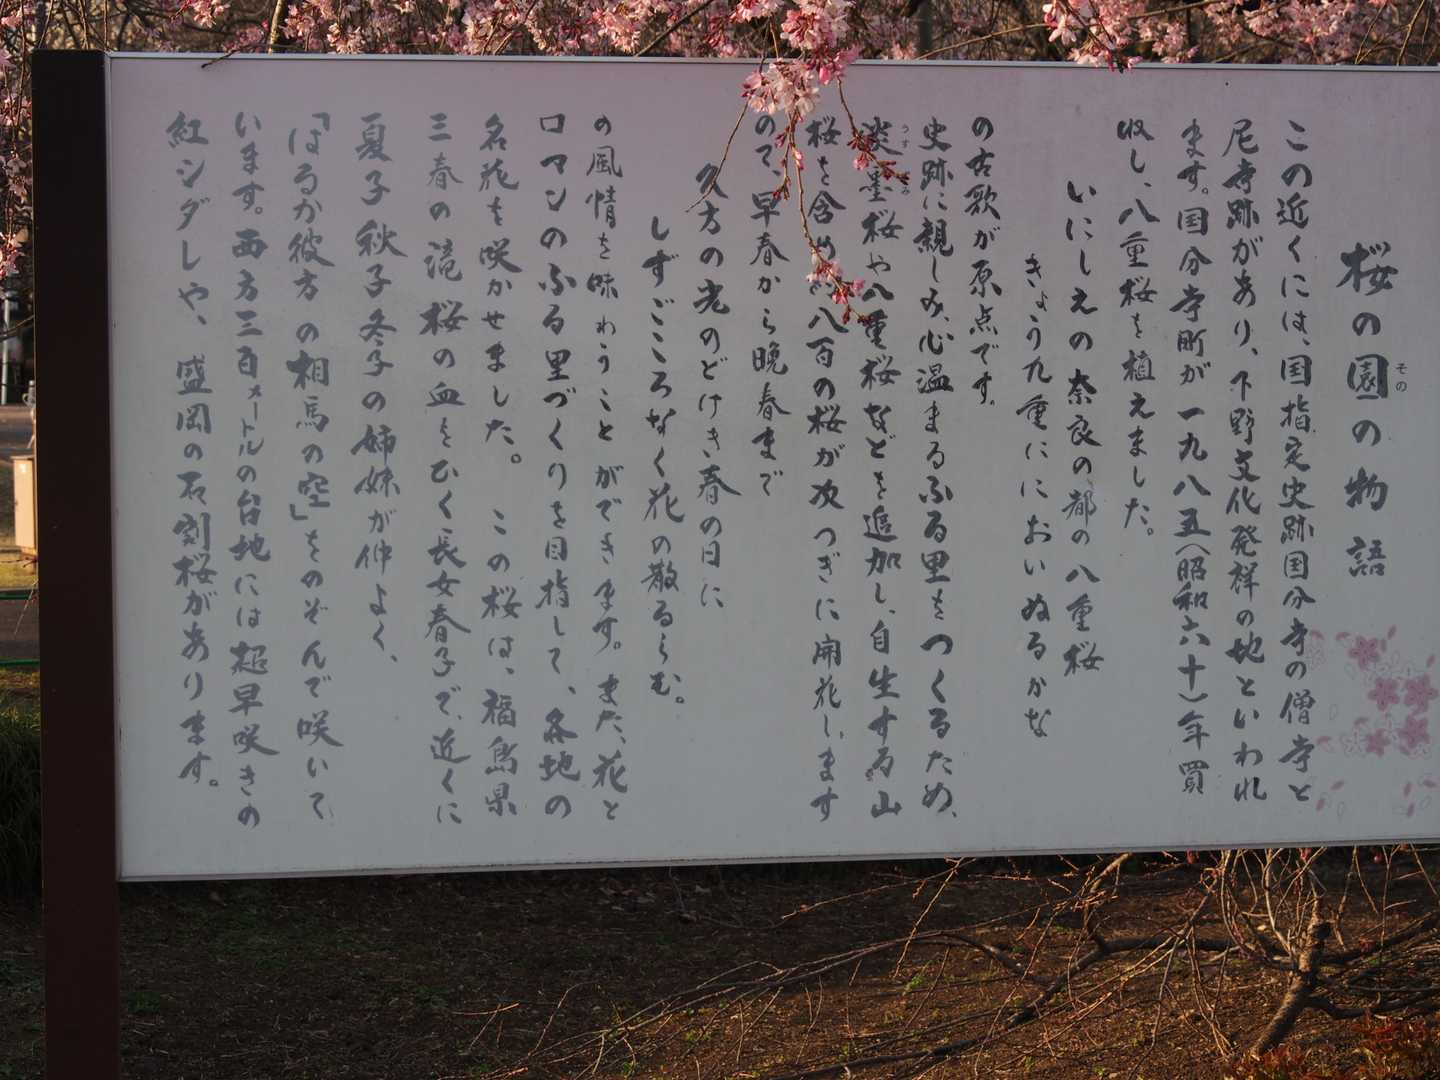 桜の園の物語
その
この近くには、国指定史跡国分寺の僧寺と
尼寺跡があり、下野文化発祥の地といわれ
ます。国分寺町が一九八五(昭和六十)年買
収し、八重桜を植えました。
いにしえの奈良の都の八重桜
きょう九重ににおいぬるかな
の古歌が原点です。
史跡に親しみ、心温まるふる里をつくるため、
淡墨桜や八重桜などを追加し、自生する山
桜を含め 八百の桜が次つぎに開花します
ので、早春から晩春まで
久方の光のどけき春の日に
しずごころなく花の散るらむ。
の風情を味わうことができます。また、花と
ロマンのふる里づくりを目指して、各地の
名花を咲かせました。この桜は、福島県
三春の滝桜の血をひく長女春子で、近くに
夏子秋子冬子の姉妹が仲よく、
「はるか彼方の相馬の空」をのぞんで咲いて
います。西方三百メートルの台地には超早咲きの
紅シダレや、盛岡の石割桜があります。